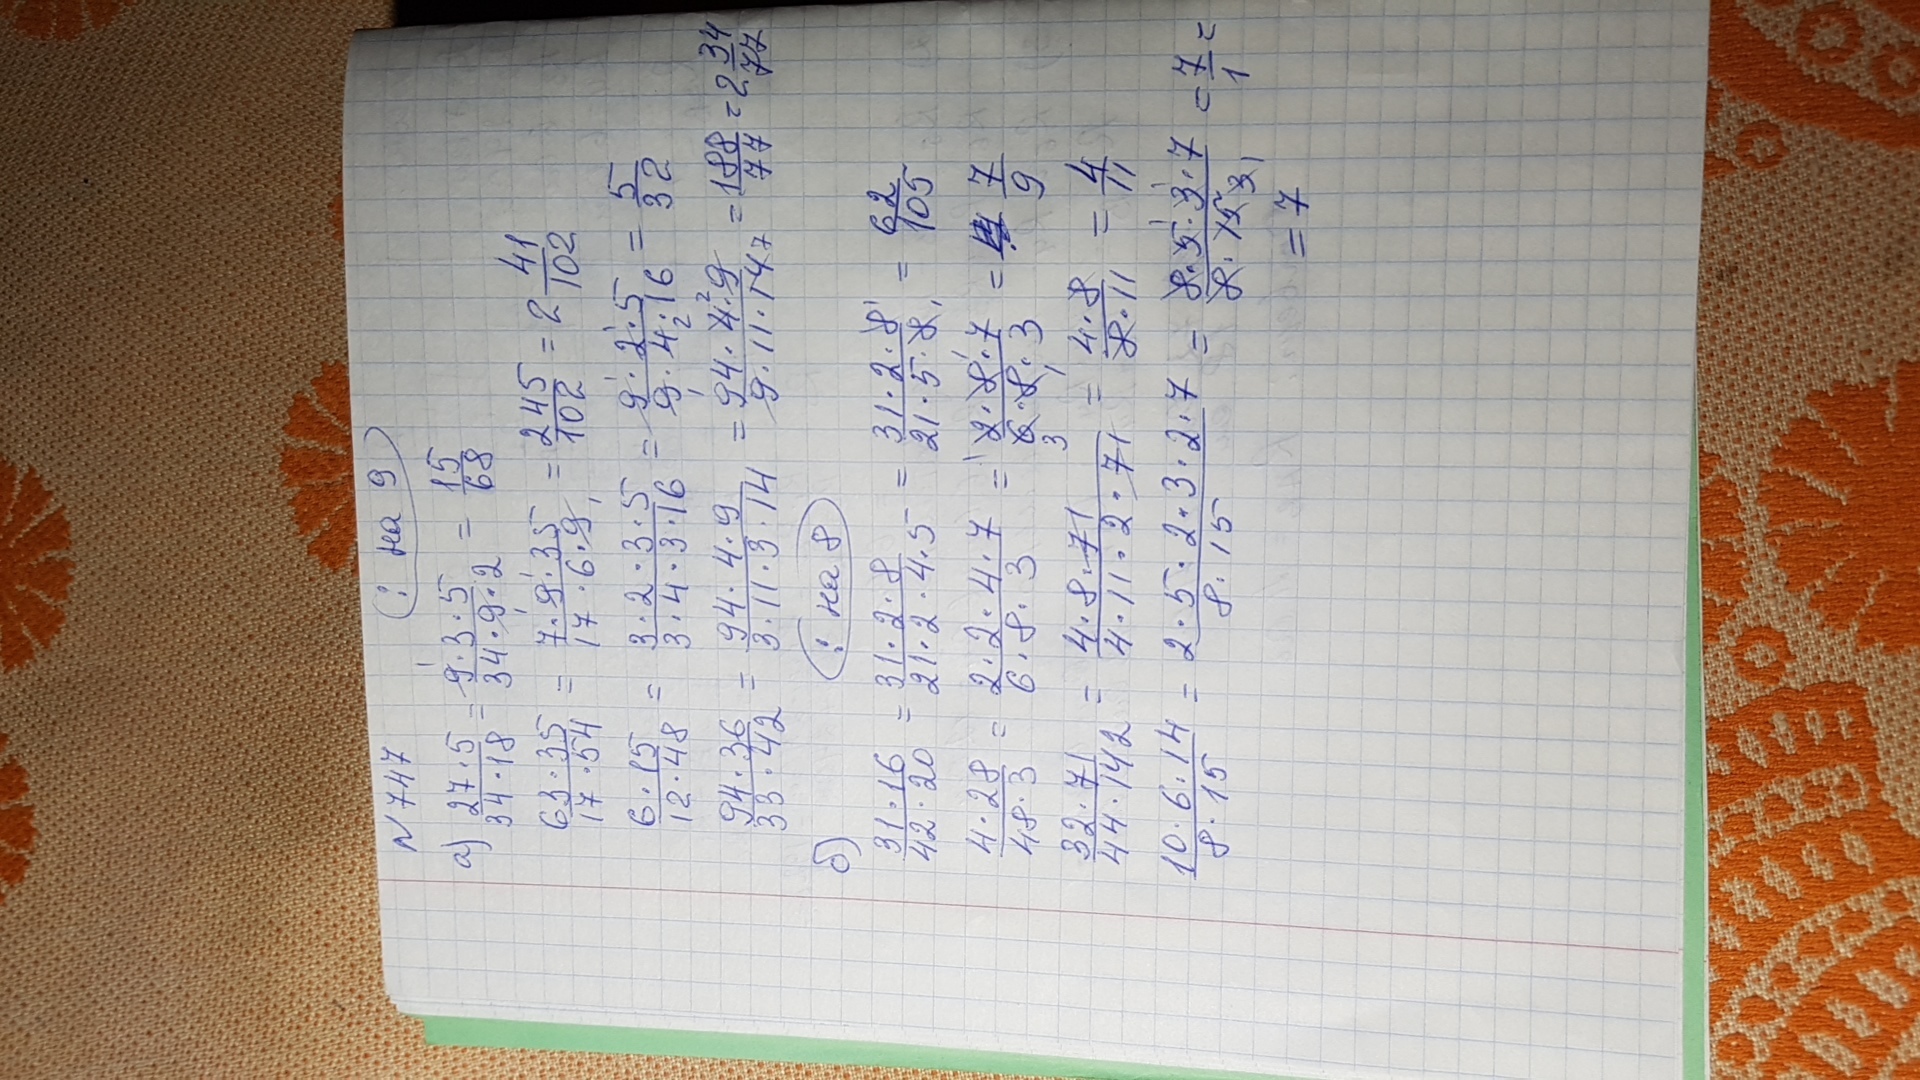 N 747 (: на 9)
а) 27·5/34·18 = 9·3·5/34·9·2 = 15/68
63·35/17·54 = 7·9·35/17·6·9 = 245/102 = 2 41/102
6·15/12·48 = 3·2·3·5/3·4·3·16 = 9·2·5/9·4·16 = 5/32
94·36/33·42 = 94·4·9/3·11·3·14 = 94·4·9/9·11·14 = 188/77 = 2 34/77
б) (: на 8)
31·16/42·20 = 31·2·8/21·2·4·5 = 31·2·8/21·5·8 = 62/105
4·28/48·3 = 2·2·4·7/6·8·3 = 2·8·7/6·8·3 = 7/9
32·71/44·142 = 4·8·71/4·11·2·71 = 4·8/8·11 = 4/11
10·6·14/8·15 = 2·5·2·3·2·7/8·15 = 8·5·3·7/8·15 = 7/1 =
= 7